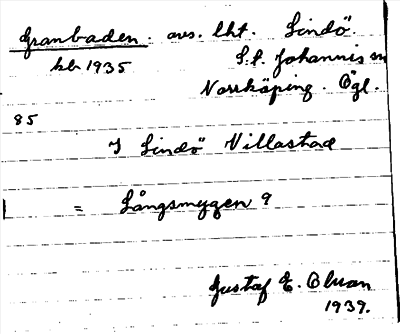 Granbaden. avs. lht. Lindö.
kb 1935 S:t Johannis sn
Norrköping. Ögl.
85
I Lindö Villastad
= Långsmygen 9
Gustaf E. Olsson
1939.